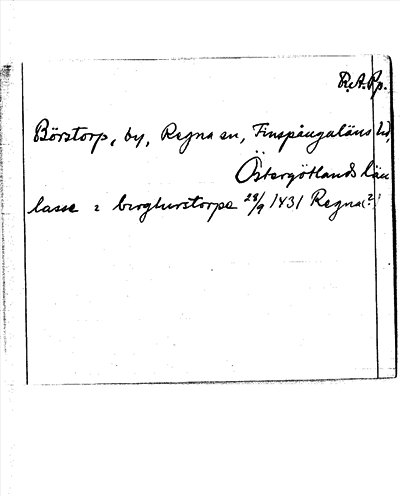 R.A. Pp.
Börstorp, by, Regna sn, Finspångaläns hd,
Östergötlands län
lasse i berghurstorpe 28/9 1431 Regna(?)